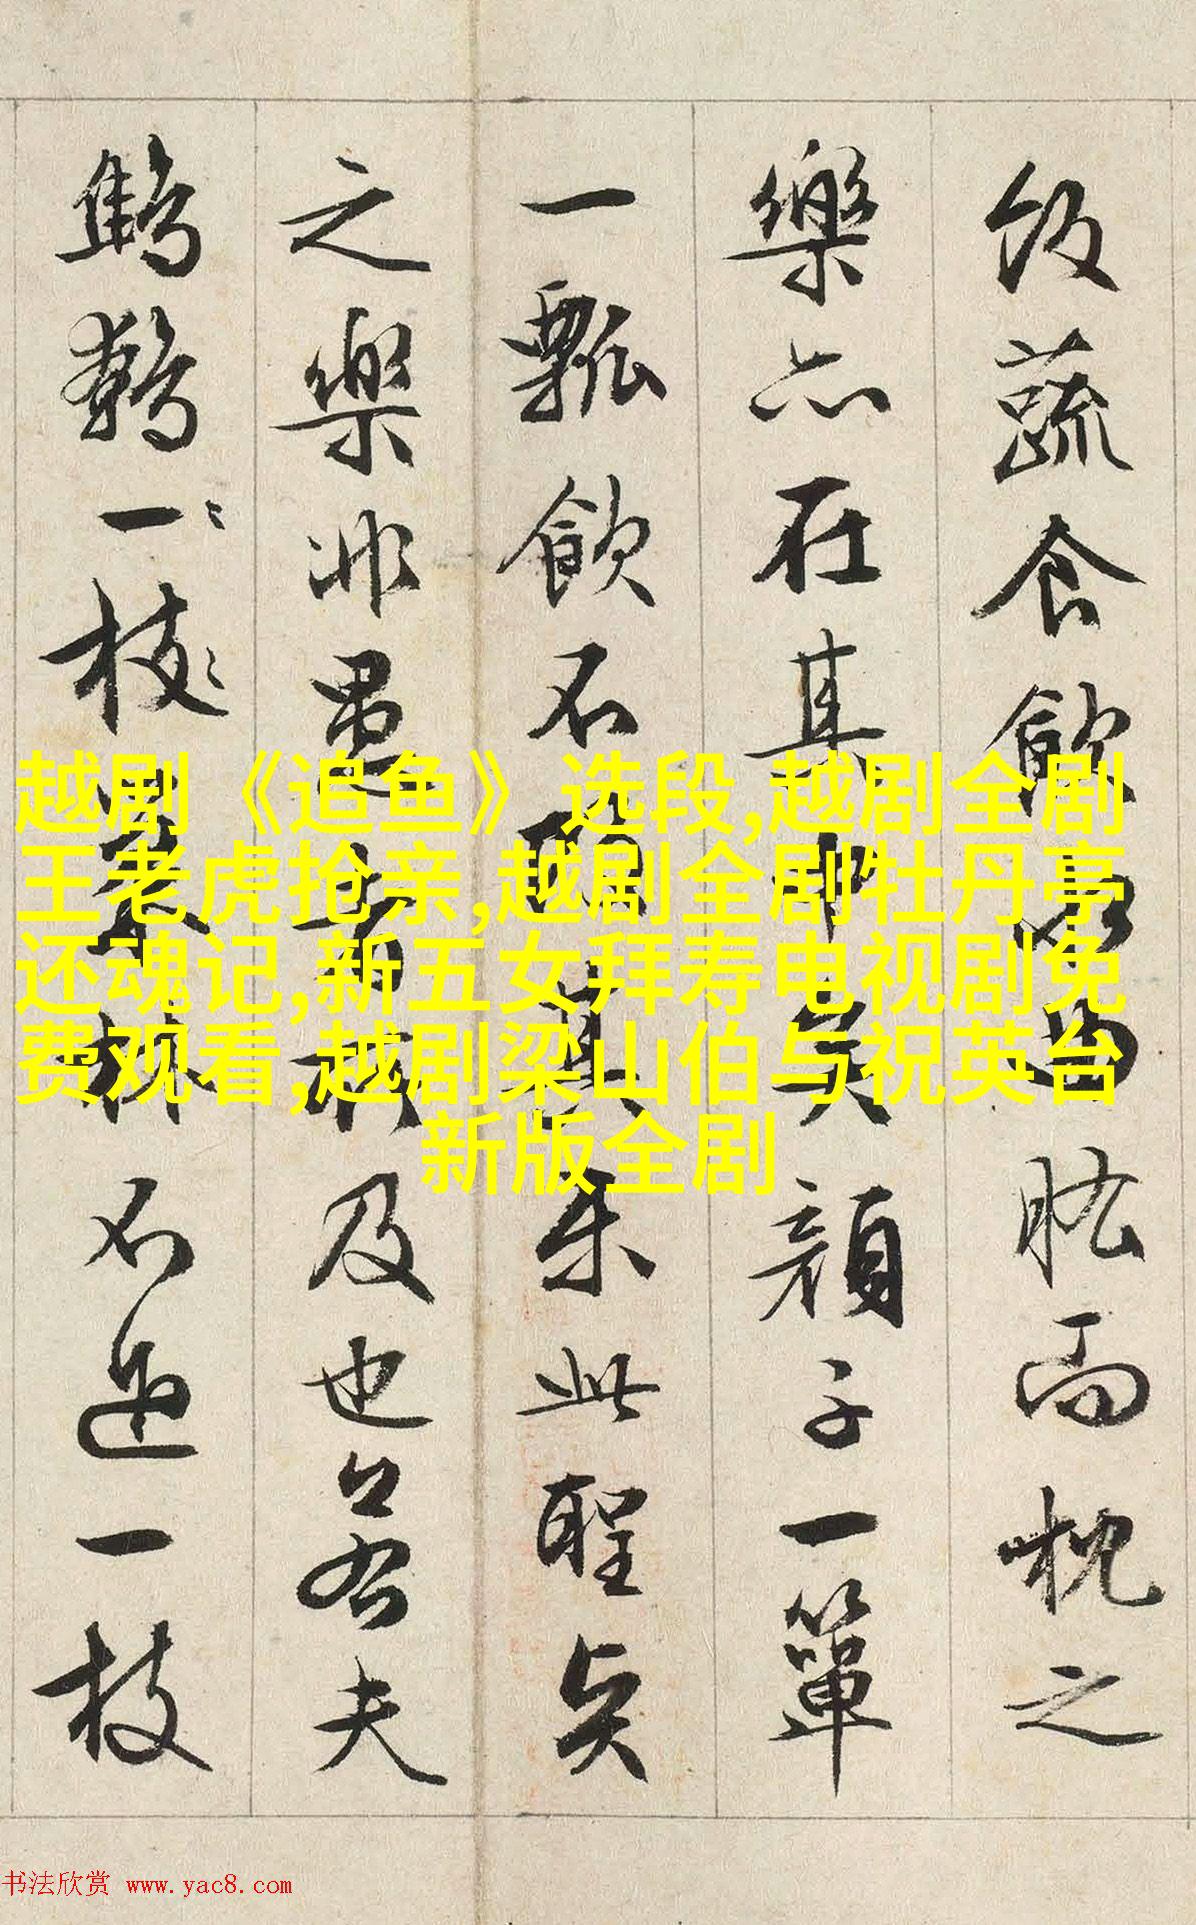 飯蔬食飲水曲肱而枕之
樂亦在其中矣顔子一簞
一瓢飲不改其樂此聖賢
之樂非愚者所及也若夫
鷦鷯一枝巢林不過一枝
越剧《追鱼》选段,越剧全剧
王老虎抢亲,越剧全剧牡丹亭
还魂记,新五女拜寿电视剧免
费观看,越剧梁山伯与祝英台
新版全剧
书法欣赏 www.yac8.com